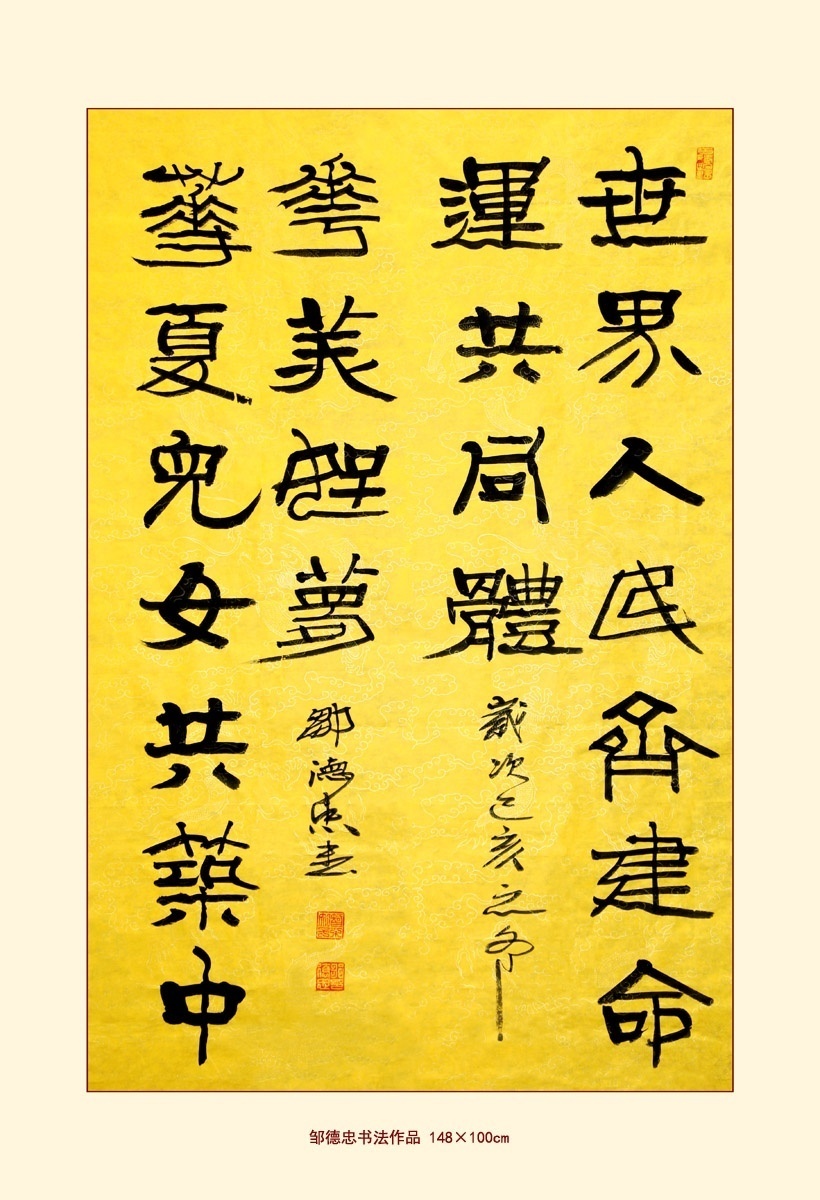 世界人民齊建命
運共同體
歲次己亥之冬
華夏兒女共築中
華美夢
鄒德忠書
邹德忠书法作品 148×100cm